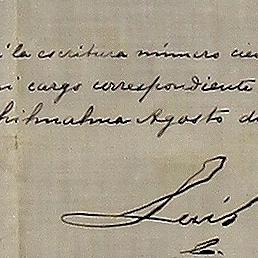 la escritura número
cargo correspondiente
Chihuahua Agosto
Luis